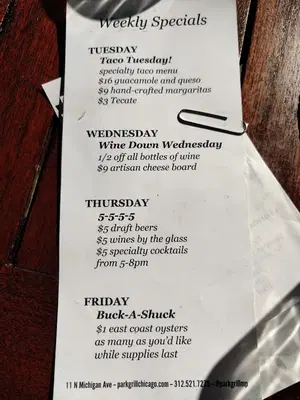 Weekly Specials
TUESDAY
Taco Tuesday!
specialty taco menu
$16 guacamole and queso
$9 hand-crafted margaritas
$3 Tecate
WEDNESDAY
Wine Down Wednesday
1/2 off all bottles of wine
$9 artisan cheese board
THURSDAY
5-5-5-5
$5 draft beers
$5 wines by the glass
$5 specialty cocktails
from 5-8pm
FRIDAY
Buck-A-Shuck
$1 east coast oysters
as many as you'd like
while supplies last
11 N Michigan Ave – parkgrillchicago.com –